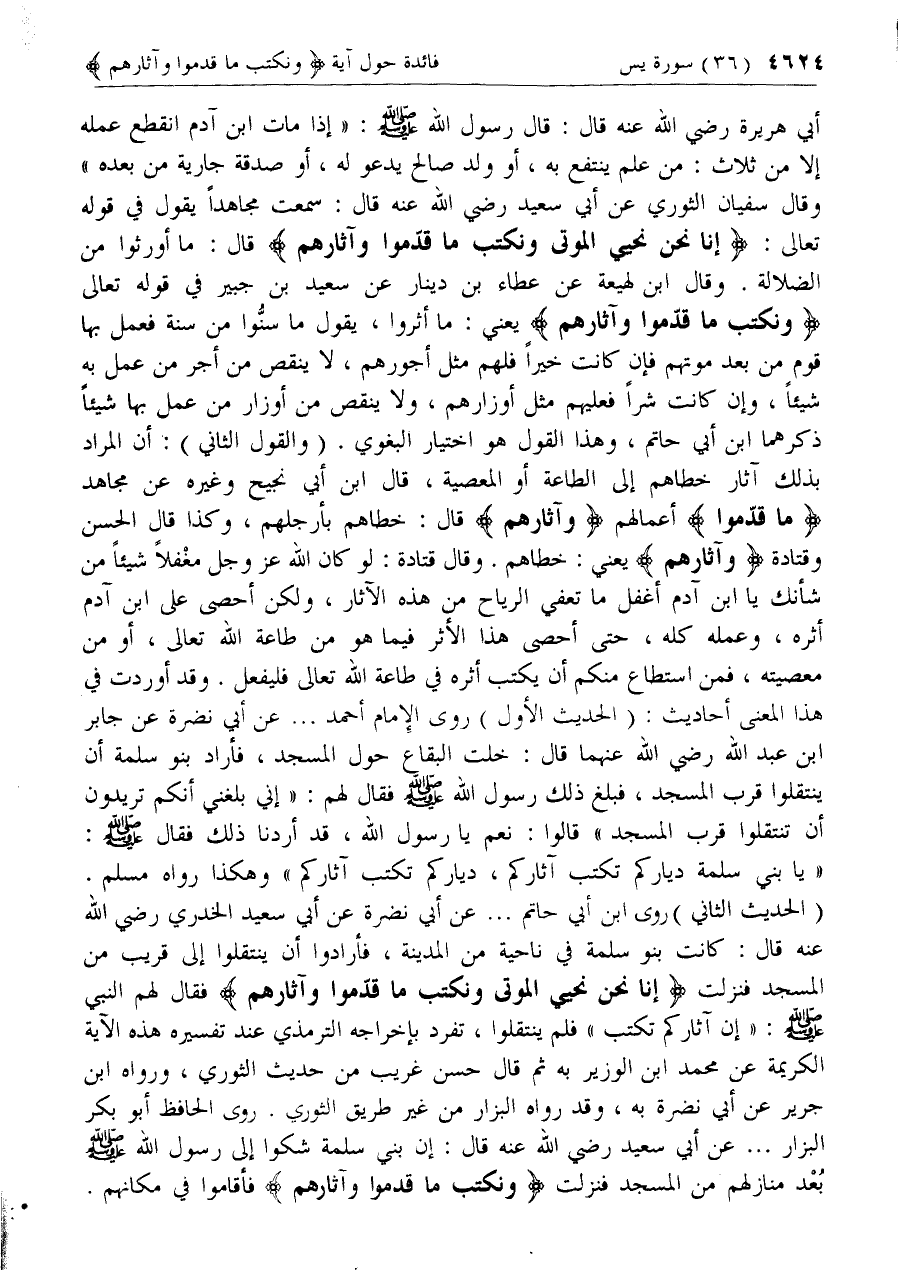 ٤٦٢٤ (٣٦) سورة يس فائدة حول آية ﴿ ونكتب ما قدموا وآثارهم ﴾
أبي هريرة رضي الله عنه قال : قال رسول الله ﷺ : « إذا مات ابن آدم انقطع عمله
إلا من ثلاث : من علم ينتفع به ، أو ولد صالح يدعو له ، أو صدقة جارية من بعده »
وقال سفيان الثوري عن أبي سعيد رضي الله عنه قال : سمعت مجاهداً يقول في قوله
تعالى : ﴿ إنا نحن نحيي الموتى ونكتب ما قدّموا وآثارهم ﴾ قال : ما أورثوا من
الضلالة . وقال ابن لهيعة عن عطاء بن دينار عن سعيد بن جبير في قوله تعالى
﴿ ونكتب ما قدّموا وآثارهم ﴾ يعني : ما أثروا ، يقول ما سنُّوا من سنة فعمل بها
قوم من بعد موتهم فإن كانت خيراً فلهم مثل أجورهم ، لا ينقص من أجر من عمل به
شيئاً ، وإن كانت شراً فعليهم مثل أوزارهم ، ولا ينقص من أوزار من عمل بها شيئاً
ذكرهما ابن أبي حاتم ، وهذا القول هو اختيار البغوي . ( والقول الثاني ) : أن المراد
بذلك آثار خطاهم إلى الطاعة أو المعصية ، قال ابن أبي نجيح وغيره عن مجاهد
﴿ ما قدّموا ﴾ أعمالهم ﴿ وآثارهم ﴾ قال : خطاهم بأرجلهم ، وكذا قال الحسن
وقتادة ﴿ وآثارهم ﴾ يعني : خطاهم . وقال قتادة : لو كان الله عز وجل مغْفلاً شيئاً من
شأنك يا ابن آدم أغفل ما تعفي الرياح من هذه الآثار ، ولكن أحصى على ابن آدم
أثره ، وعمله كله ، حتى أحصى هذا الأثر فيما هو من طاعة الله تعالى ، أو من
معصيته ، فمن استطاع منكم أن يكتب أثره في طاعة الله تعالى فليفعل . وقد أوردت في
هذا المعنى أحاديث : ( الحديث الأول ) روى الإمام أحمد ... عن أبي نضرة عن جابر
ابن عبد الله رضي الله عنهما قال : خلت البقاع حول المسجد ، فأراد بنو سلمة أن
ينتقلوا قرب المسجد ، فبلغ ذلك رسول الله ﷺ فقال لهم : « إني بلغني أنكم تريدون
أن تنتقلوا قرب المسجد » قالوا : نعم يا رسول الله ، قد أردنا ذلك فقال ﷺ :
« يا بني سلمة دياركم تكتب آثاركم ، دياركم تكتب آثاركم » وهكذا رواه مسلم .
( الحديث الثاني ) روى ابن أبي حاتم ... عن أبي نضرة عن أبي سعيد الخدري رضي الله
عنه قال : كانت بنو سلمة في ناحية من المدينة ، فأرادوا أن ينتقلوا إلى قريب من
المسجد فنزلت ﴿ إنا نحن نحيي الموتى ونكتب ما قدّموا وآثارهم ﴾ فقال لهم النبي
ﷺ : « إن آثاركم تكتب » فلم ينتقلوا ، تفرد بإخراجه الترمذي عند تفسيره هذه الآية
الكريمة عن محمد ابن الوزير به ثم قال حسن غريب من حديث الثوري ، ورواه ابن
جرير عن أبي نضرة به ، وقد رواه البزار من غير طريق الثوري . روى الحافظ أبو بكر
البزار ... عن أبي سعيد رضي الله عنه قال : إن بني سلمة شكوا إلى رسول الله ﷺ
بُعْد منازلهم من المسجد فنزلت ﴿ ونكتب ما قدموا وآثارهم ﴾ فأقاموا في مكانهم .